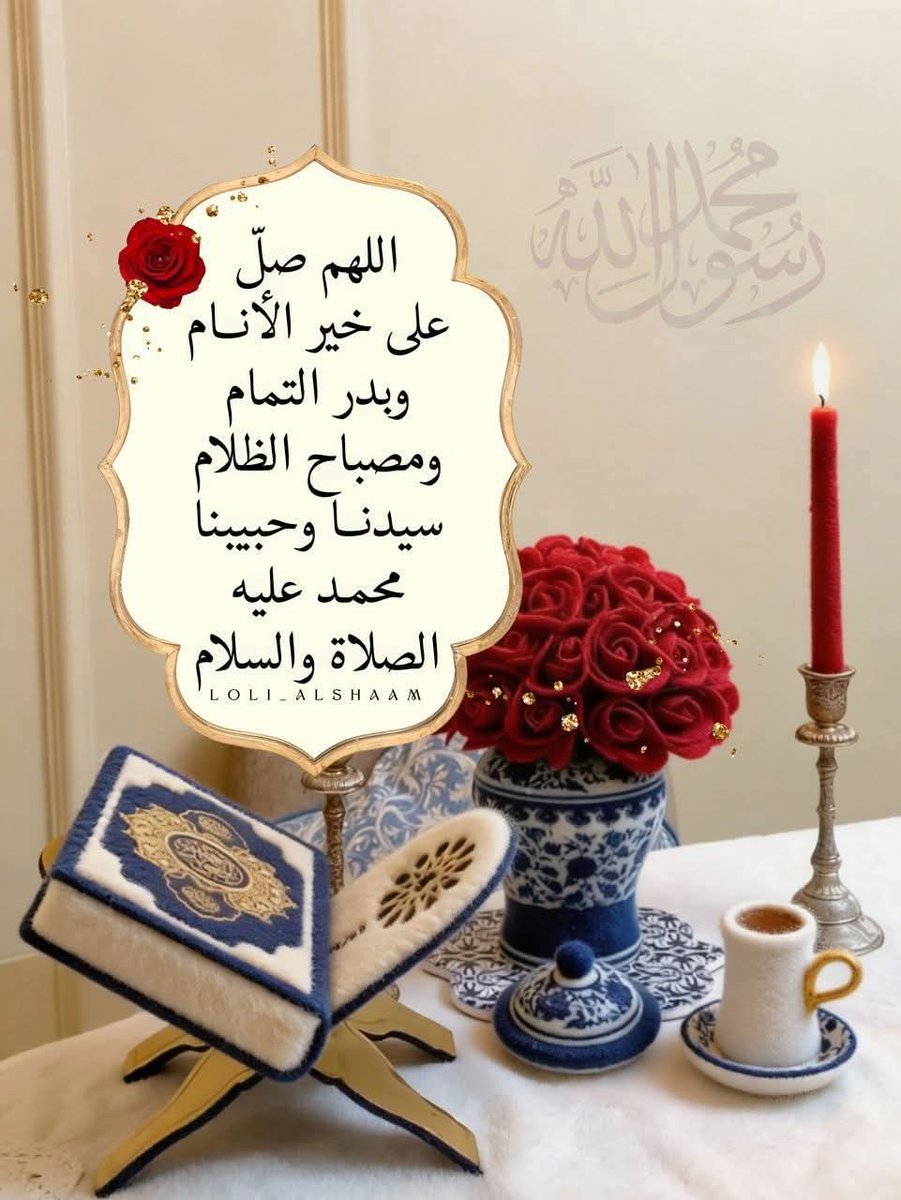 اللهم صلّ
على خير الأنـام
وبدر التمام
ومصباح الظلام
سيدنـا وحبيبنا
محمد عليه
الصلاة والسلام
LOLI_ALSHAAM
محمد
رسول الله